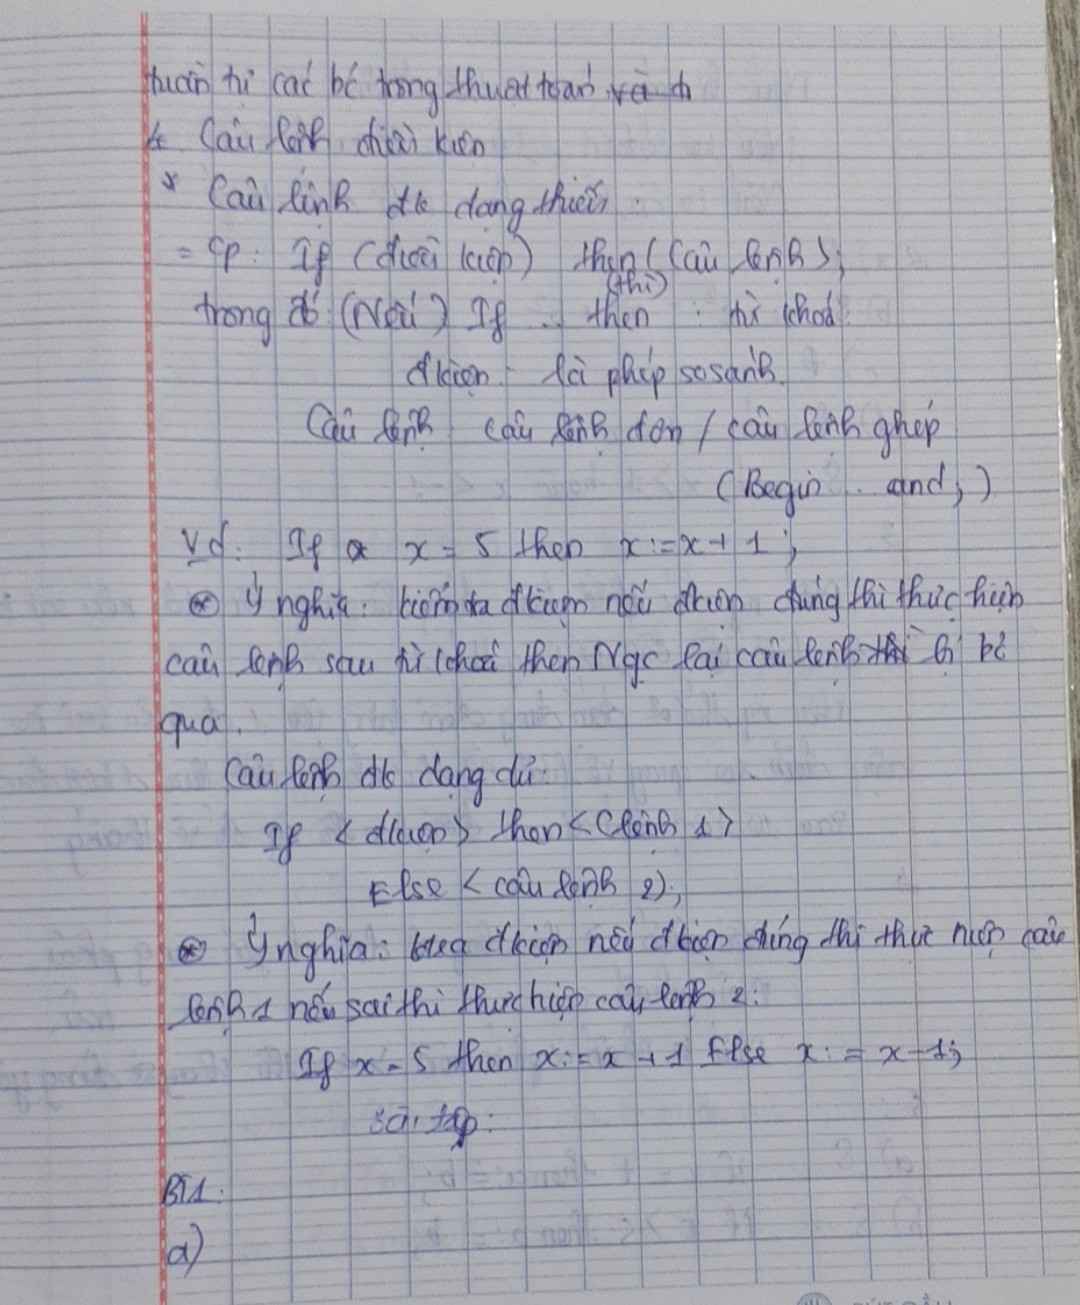 tuần tự các bć trong thuật toán
4. Câu lệnh điều kiện
* Câu lệnh đk dạng thiếu
= Cp: If (điều kiện) then (câu lệnh);
(thì)
trong đó (Nếu) If .. then : từ khoá
đkiện là phép so sánh.
Câu lệnh câu lệnh đơn / câu lệnh ghép
(Begin . and;)
Vd: If x = 5 then x:=x+1;
Ý nghĩa: kiểm tra đkiện nếu đkiện đúng thì thực hiện
câu lệnh sau từ khoá then Ngc lại câu lệnh bị bỏ
qua.
Câu lệnh đk dạng đủ:
If <đkiện> then <Clệnh 1>
Else < câu lệnh 2);
Ý nghĩa: ktra đkiện nếu đkiện đúng thì thực hiện câu
lệnh 1 nếu sai thì thực hiện câu lệnh 2:
If x = 5 then x:= x + 1 Else x:= x-1;
Bài tập:
BT1:
a)